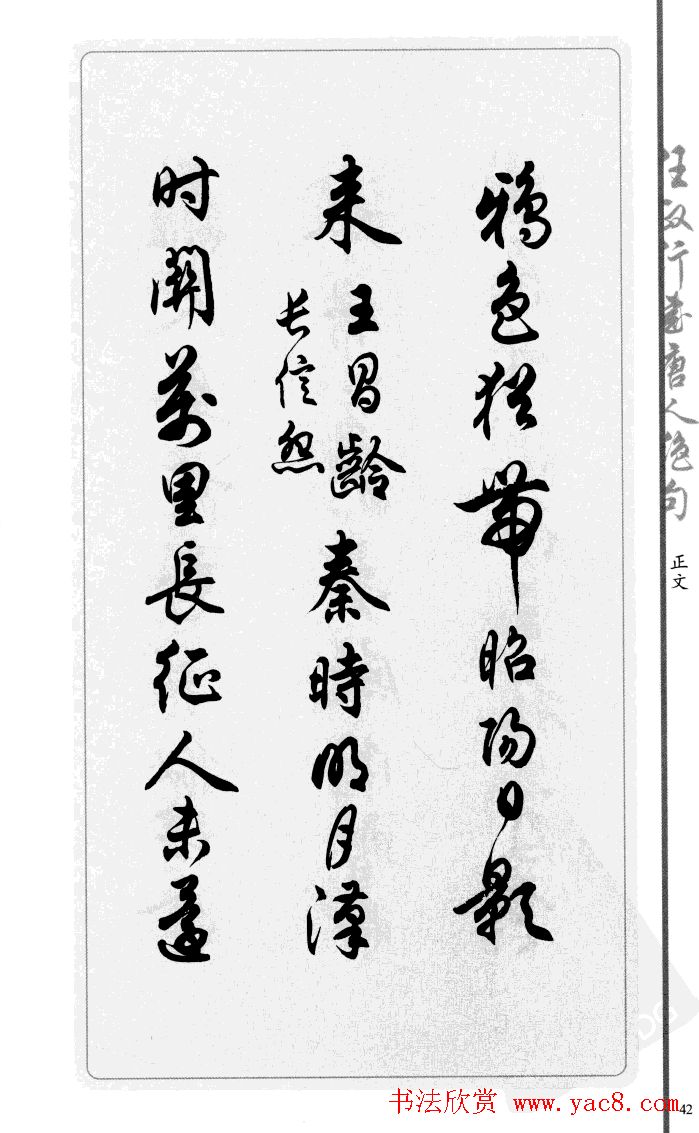 鴉色猶帶昭陽日影
来
王昌齡
长信怨
秦時明月漢
时關萬里長征人未還
任政行書唐人絶句
正文
书法欣赏 www.yac8.com
42